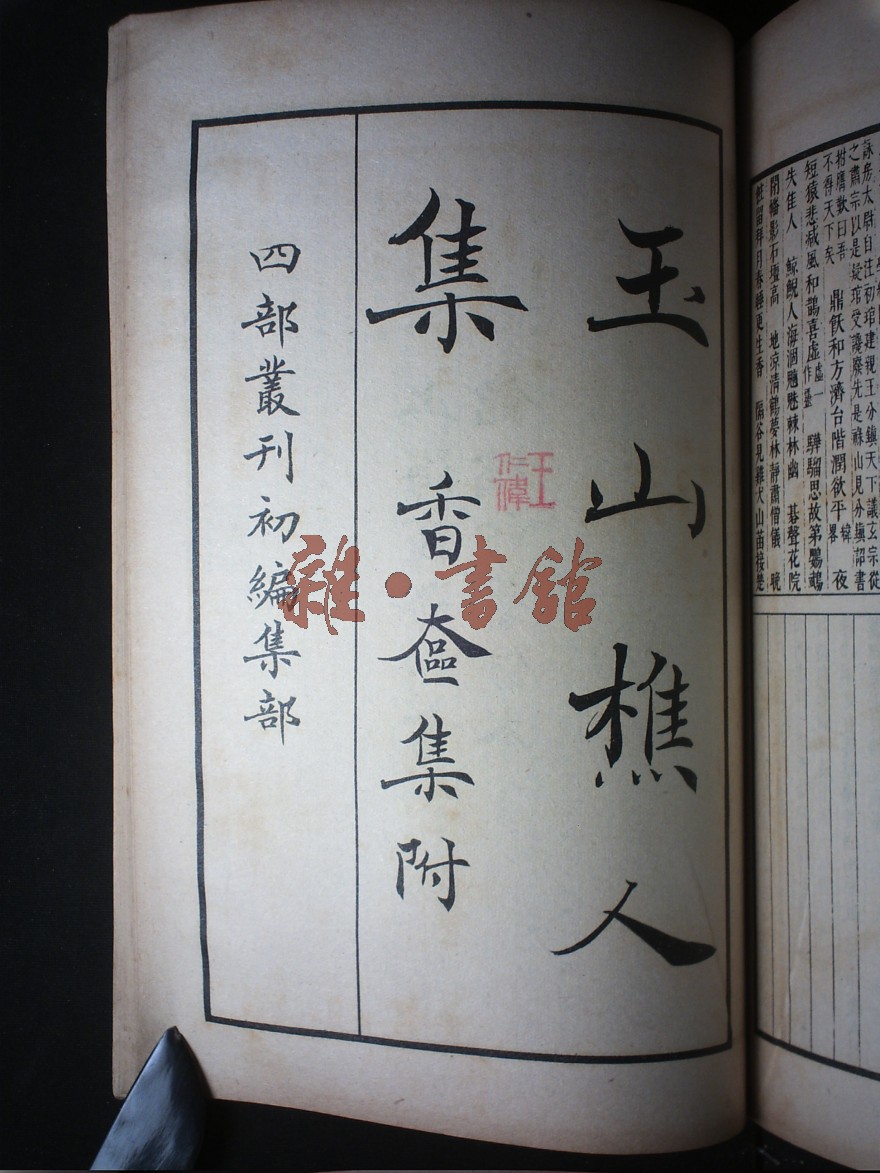 詠房太尉自注初琯建親王分鎮天下議玄宗從
之肅宗以是疑琯受讒廢先是祿山見分鎮詔書
拊膺歎曰吾
不得天下矣
鼎飫和方濟台階潤欲平
夜
短猿悲減風和鵲喜虛 虛一作靈 驊騮思故第鸚鵡
失佳人 鯨鯢人海涸魑魅棘林幽 碁聲花院
閉幡影石壇高 地涼清鶴夢林靜肅僧儀 曉
粧留拜月春睡更生香 隔谷見雞犬山苗接楚
玉山樵人
集
香奩集附
四部叢刊初編集部
王
仁偉
雜·書館